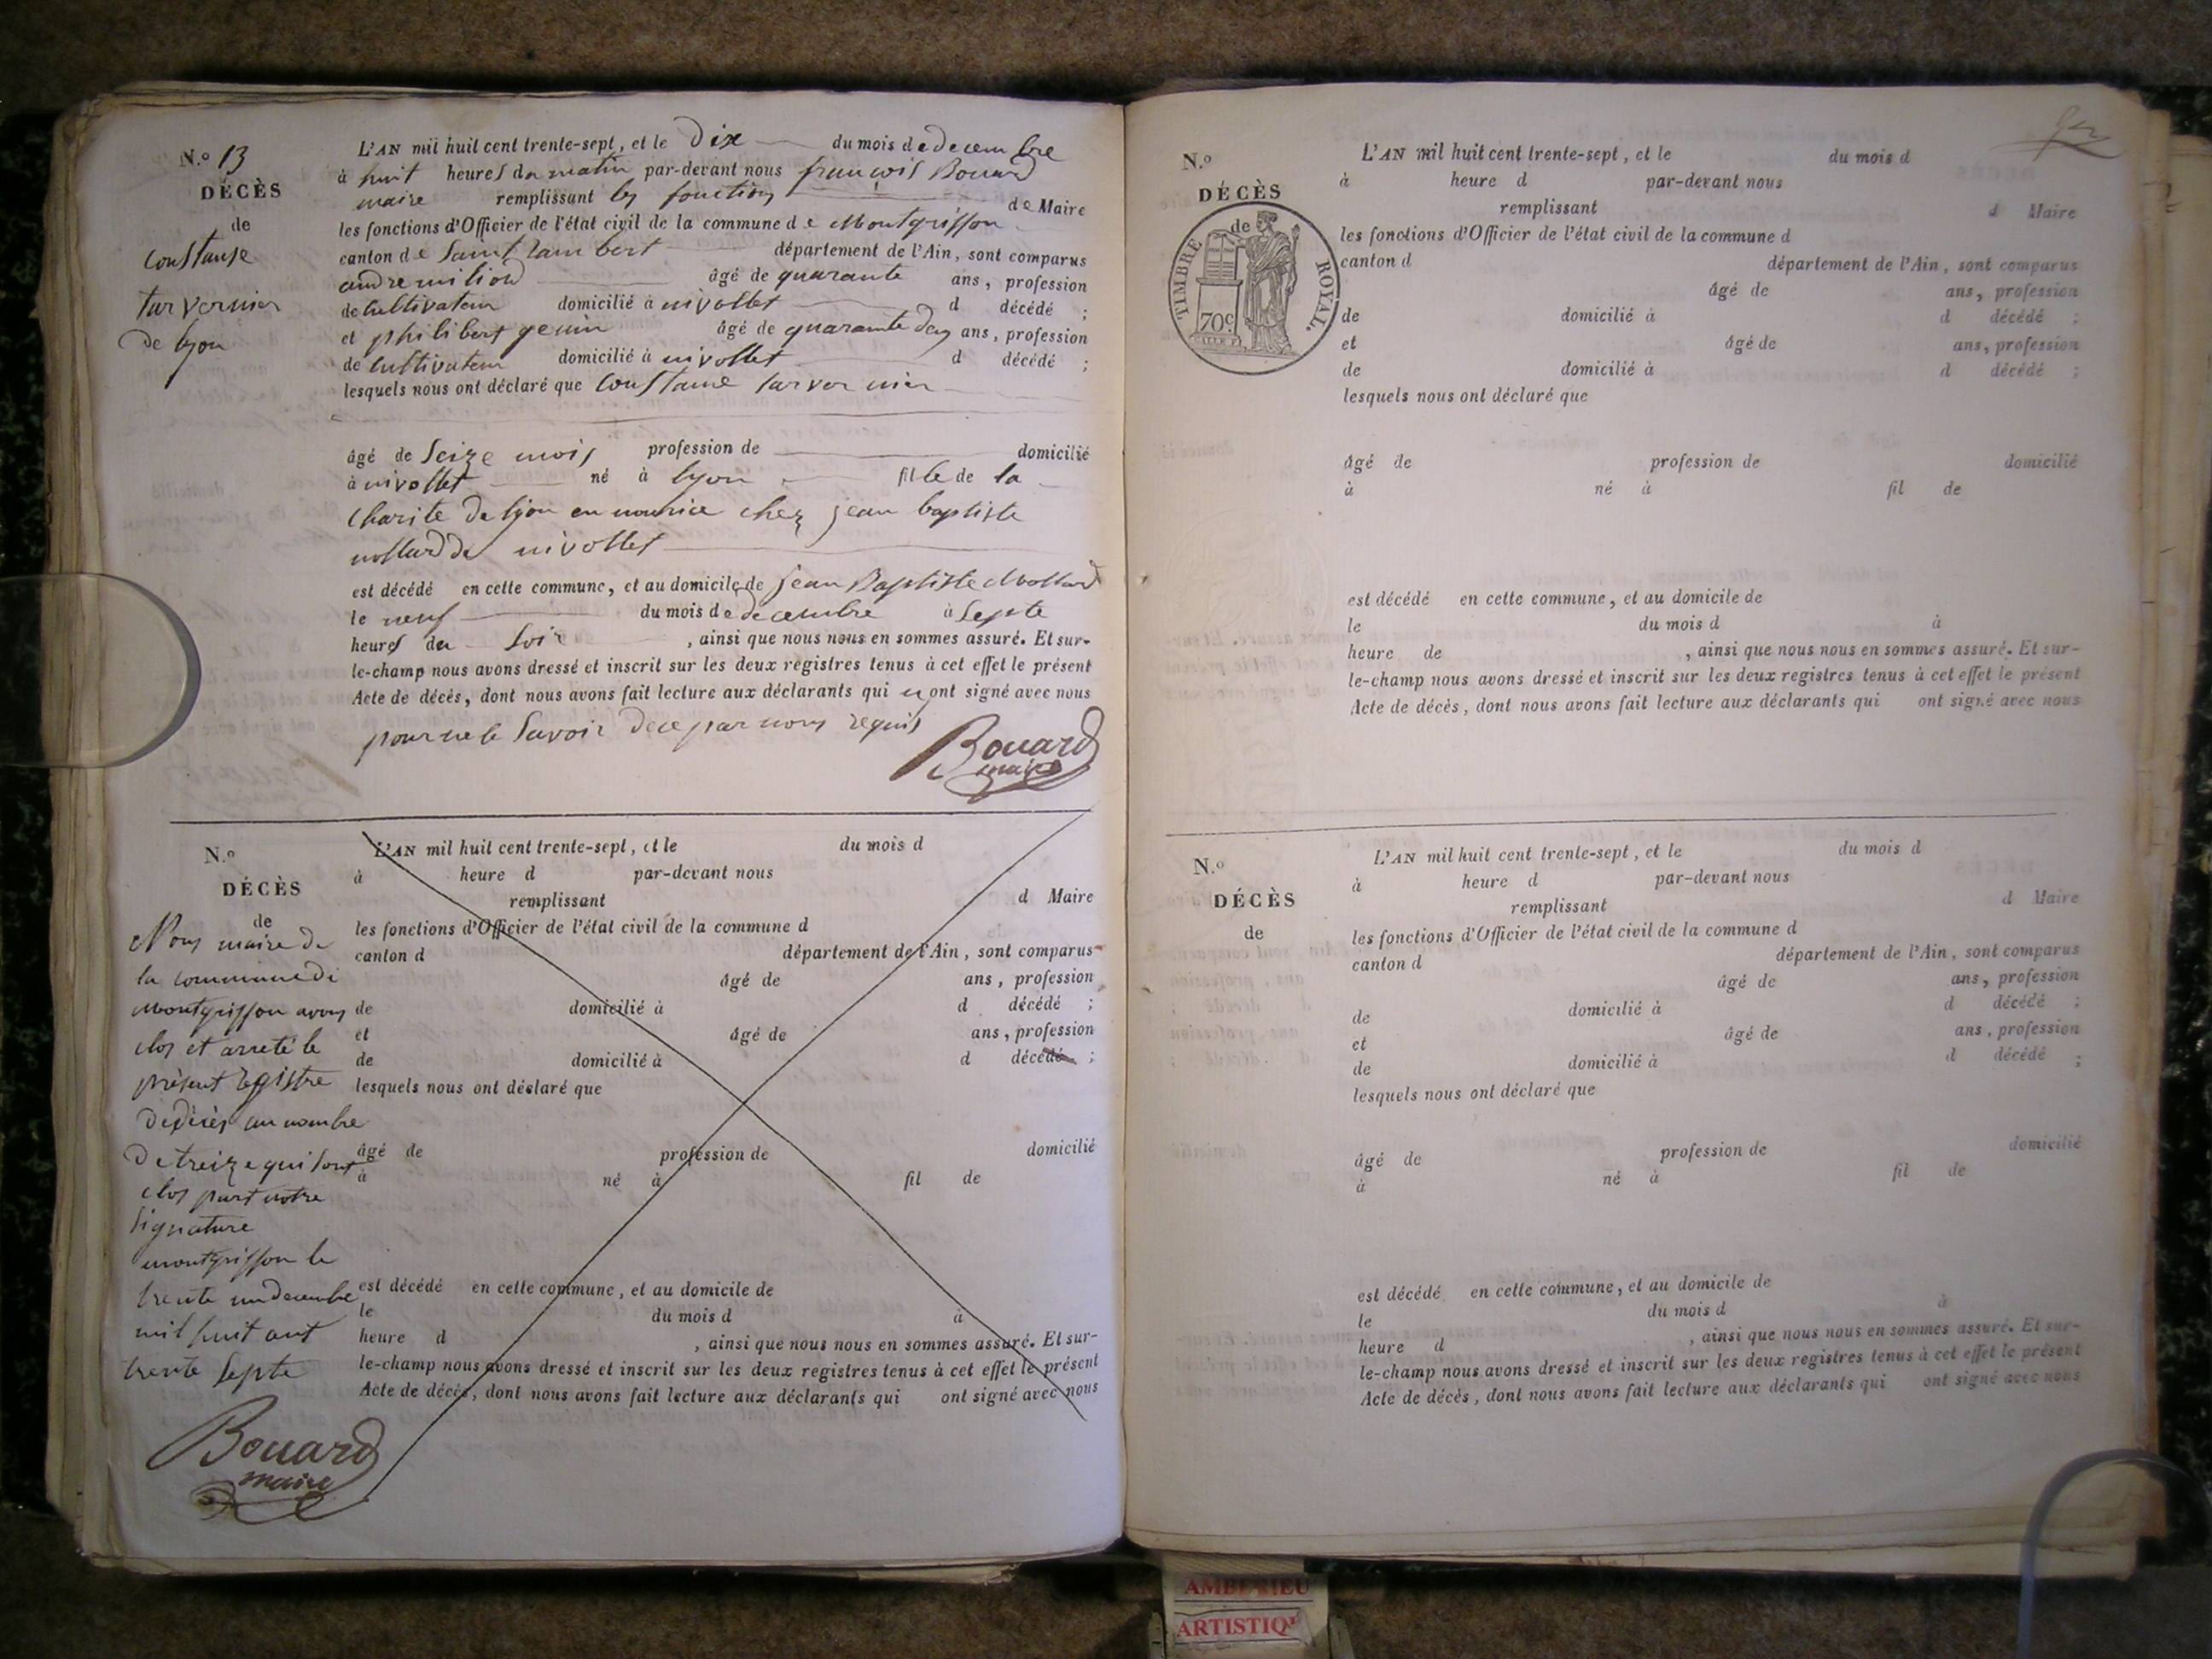 N.º 13
DÉCÈS
de
Constanse
tarvernier
de lyon
L'AN mil huit cent trente-sept, et le Dix du mois de decembre
à huit heures du matin par-devant nous françois Bouard
maire remplissant les fonctions de Maire
les fonctions d'Officier de l'état civil de la commune de Montgriffon
canton de Saint rambert département de l'Ain, sont comparus
andre miliond âgé de quarante ans, profession
de Cultivateur domicilié à nivollet d décédé ;
et philibert genin âgé de quarante ans, profession
de Cultivateur domicilié à nivollet d décédé ;
lesquels nous ont déclaré que Constance tarvernier
âgé de Seize mois profession de domicilié
à nivollet né à lyon fille de la
Charité de lyon en nourice chez jean baptiste
mollard de nivollet
est décédé en cette commune, et au domicile de jean Baptiste Mollard
le neuf du mois de decembre à Septe
heures du Soir , ainsi que nous nous en sommes assuré. Et sur-
le-champ nous avons dressé et inscrit sur les deux registres tenus à cet effet le présent
Acte de décés, dont nous avons fait lecture aux déclarants qui n ont signé avec nous
pour ne le Savoir de ce par nous requis
Bouard
maire
N.º
DÉCÈS
de
Nous maire de
la commune de
Montgriffon avons
clos et arreté le
présent registre
de décès au nombre
de treize qui sont
clos part notre
signature
montgriffon le
trente un decembre
mil huit cent
trente Septe
Bouard
maire
L'AN mil huit cent trente-sept, et le du mois d
à heure d par-devant nous
remplissant d Maire
les fonctions d'Officier de l'état civil de la commune d
canton d département de l'Ain, sont comparus
âgé de ans, profession
de domicilié à d décédé ;
et âgé de ans, profession
de domicilié à d décédé ;
lesquels nous ont déclaré que
âgé de profession de domicilié
à né à fil de
est décédé en cette commune, et au domicile de
le du mois d à
heure d , ainsi que nous nous en sommes assuré. Et sur-
le-champ nous avons dressé et inscrit sur les deux registres tenus à cet effet le présent
Acte de décés, dont nous avons fait lecture aux déclarants qui ont signé avec nous
N.º
DÉCÈS
de
TIMBRE ROYAL.
70c
L'AN mil huit cent trente-sept, et le du mois d
à heure d par-devant nous
remplissant d Maire
les fonctions d'Officier de l'état civil de la commune d
canton d département de l'Ain, sont comparus
âgé de ans, profession
de domicilié à d décédé ;
et âgé de ans, profession
de domicilié à d décédé ;
lesquels nous ont déclaré que
âgé de profession de domicilié
à né à fil de
est décédé en cette commune, et au domicile de
le du mois d à
heure de , ainsi que nous nous en sommes assuré. Et sur-
le-champ nous avons dressé et inscrit sur les deux registres tenus à cet effet le présent
Acte de décès, dont nous avons fait lecture aux déclarants qui ont signé avec nous
N.º
DÉCÈS
de
L'AN mil huit cent trente-sept, et le du mois d
à heure d par-devant nous
remplissant d Maire
les fonctions d'Officier de l'état civil de la commune d
canton d département de l'Ain, sont comparus
âgé de ans, profession
de domicilié à d décédé ;
et âgé de ans, profession
de domicilié à d décédé ;
lesquels nous ont déclaré que
âgé de profession de domicilié
à né à fil de
est décédé en cette commune, et au domicile de
le du mois d à
heure d , ainsi que nous nous en sommes assuré. Et sur-
le-champ nous avons dressé et inscrit sur les deux registres tenus à cet effet le présent
Acte de décès, dont nous avons fait lecture aux déclarants qui ont signé avec nous
AMBERIEU
ARTISTIQU